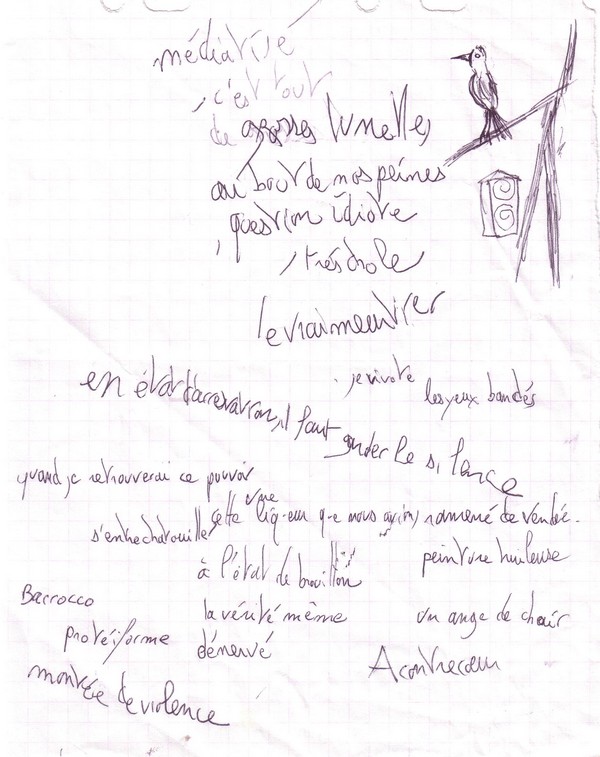 médiatisé
, c'est tout
de grosses lunettes
au bout de nos peines
, question idiote
, très drole
le vrai meurtrier
je vivote
les yeux bandés
en état d'arrestation, il faut garder le silence
quand je retrouverai ce pouvoir
s'entrechatouiller
cette liqueur que nous avions ramené de Vendée.
à l'état de brouillon
peinture huileuse
Barrocco
la vérité même
un ange de chair
protéiforme
dénervé
A contrecoeur
montée de violence